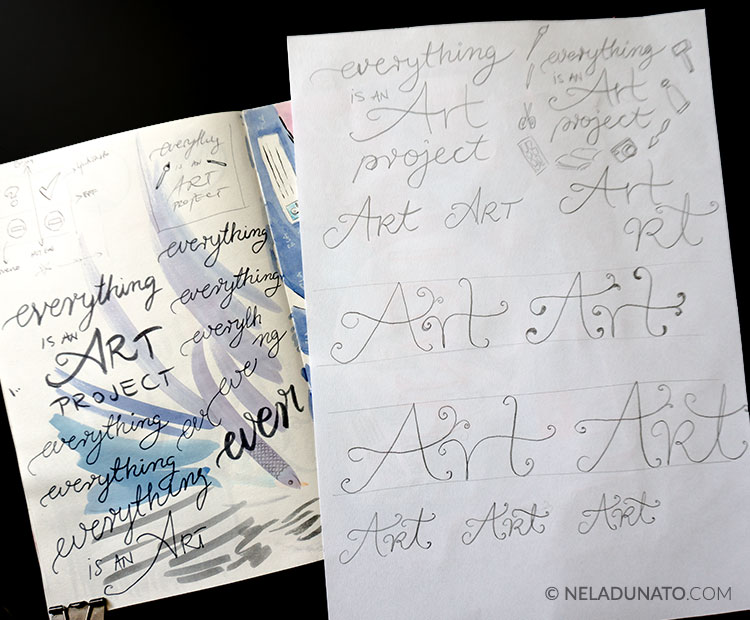 everything
IS AN
ART
PROJECT
everything
everything
IS AN
ART
PROJECT
everything
everyth
ng
eve
er
ever
everything
everything
everything
IS AN ART
everything
IS AN Art
project
everything
IS AN
Art
project
Art ART Art
rt
Art Art
Art Art
Art Art Art
© NELADUNATO.COM